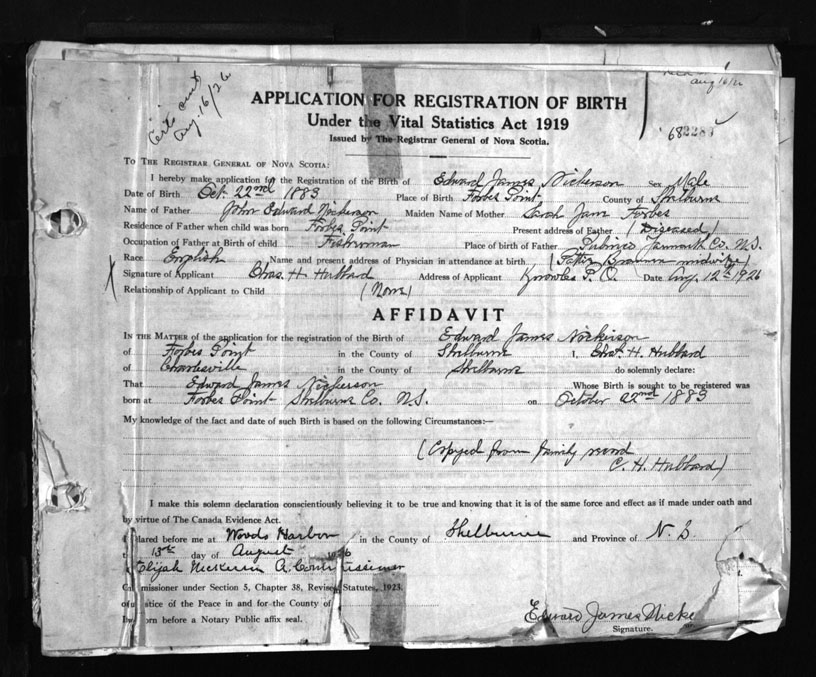 Aug. 16/26
aug 16/26
APPLICATION FOR REGISTRATION OF BIRTH
Under the Vital Statistics Act 1919
Issued by The Registrar General of Nova Scotia.
68228
TO THE REGISTRAR GENERAL OF NOVA SCOTIA:
I hereby make application for the Registration of the Birth of Edward James Nickerson Sex Male
Date of Birth Oct. 22nd 1883 Place of Birth Forbes Point County of Shelburne
Name of Father John Edward Nickerson Maiden Name of Mother Sarah Jane Forbes
Residence of Father when child was born Forbes Point Present address of Father (Diseased)
Occupation of Father at Birth of child Fisherman Place of birth of Father Pubnico Yarmouth Co. N.S.
Race English Name and present address of Physician in attendance at birth ( midwife)
Signature of Applicant Chas. H. Hubbard Address of Applicant Knowles P.O. Date Aug. 12th 1926
Relationship of Applicant to Child (None)
AFFIDAVIT
IN THE MATTER of the application for the registration of the Birth of Edward James Nickerson
of Forbes Point in the County of Shelburne I, Chas. H. Hubbard
of Charlesville in the County of Shelburne do solemnly declare:
That Edward James Nickerson Whose Birth is sought to be registered was
born at Forbes Point Shelburne Co. N.S. on October 22nd 1883
My knowledge of the fact and date of such Birth is based on the following Circumstances:—
(Copyed from family record
C. H. Hubbard)
I make this solemn declaration conscientiously believing it to be true and knowing that it is of the same force and effect as if made under oath and
by virtue of The Canada Evidence Act.
lared before me at Woods Harbor in the County of Shelburne and Province of N.S.
13th day of August 1926
Elijah Nickerson A Commissioner
missioner under Section 5, Chapter 38, Revised Statutes, 1923.
of Justice of the Peace in and for the County of
orn before a Notary Public affix seal.
Edward James Nicke
Signature.